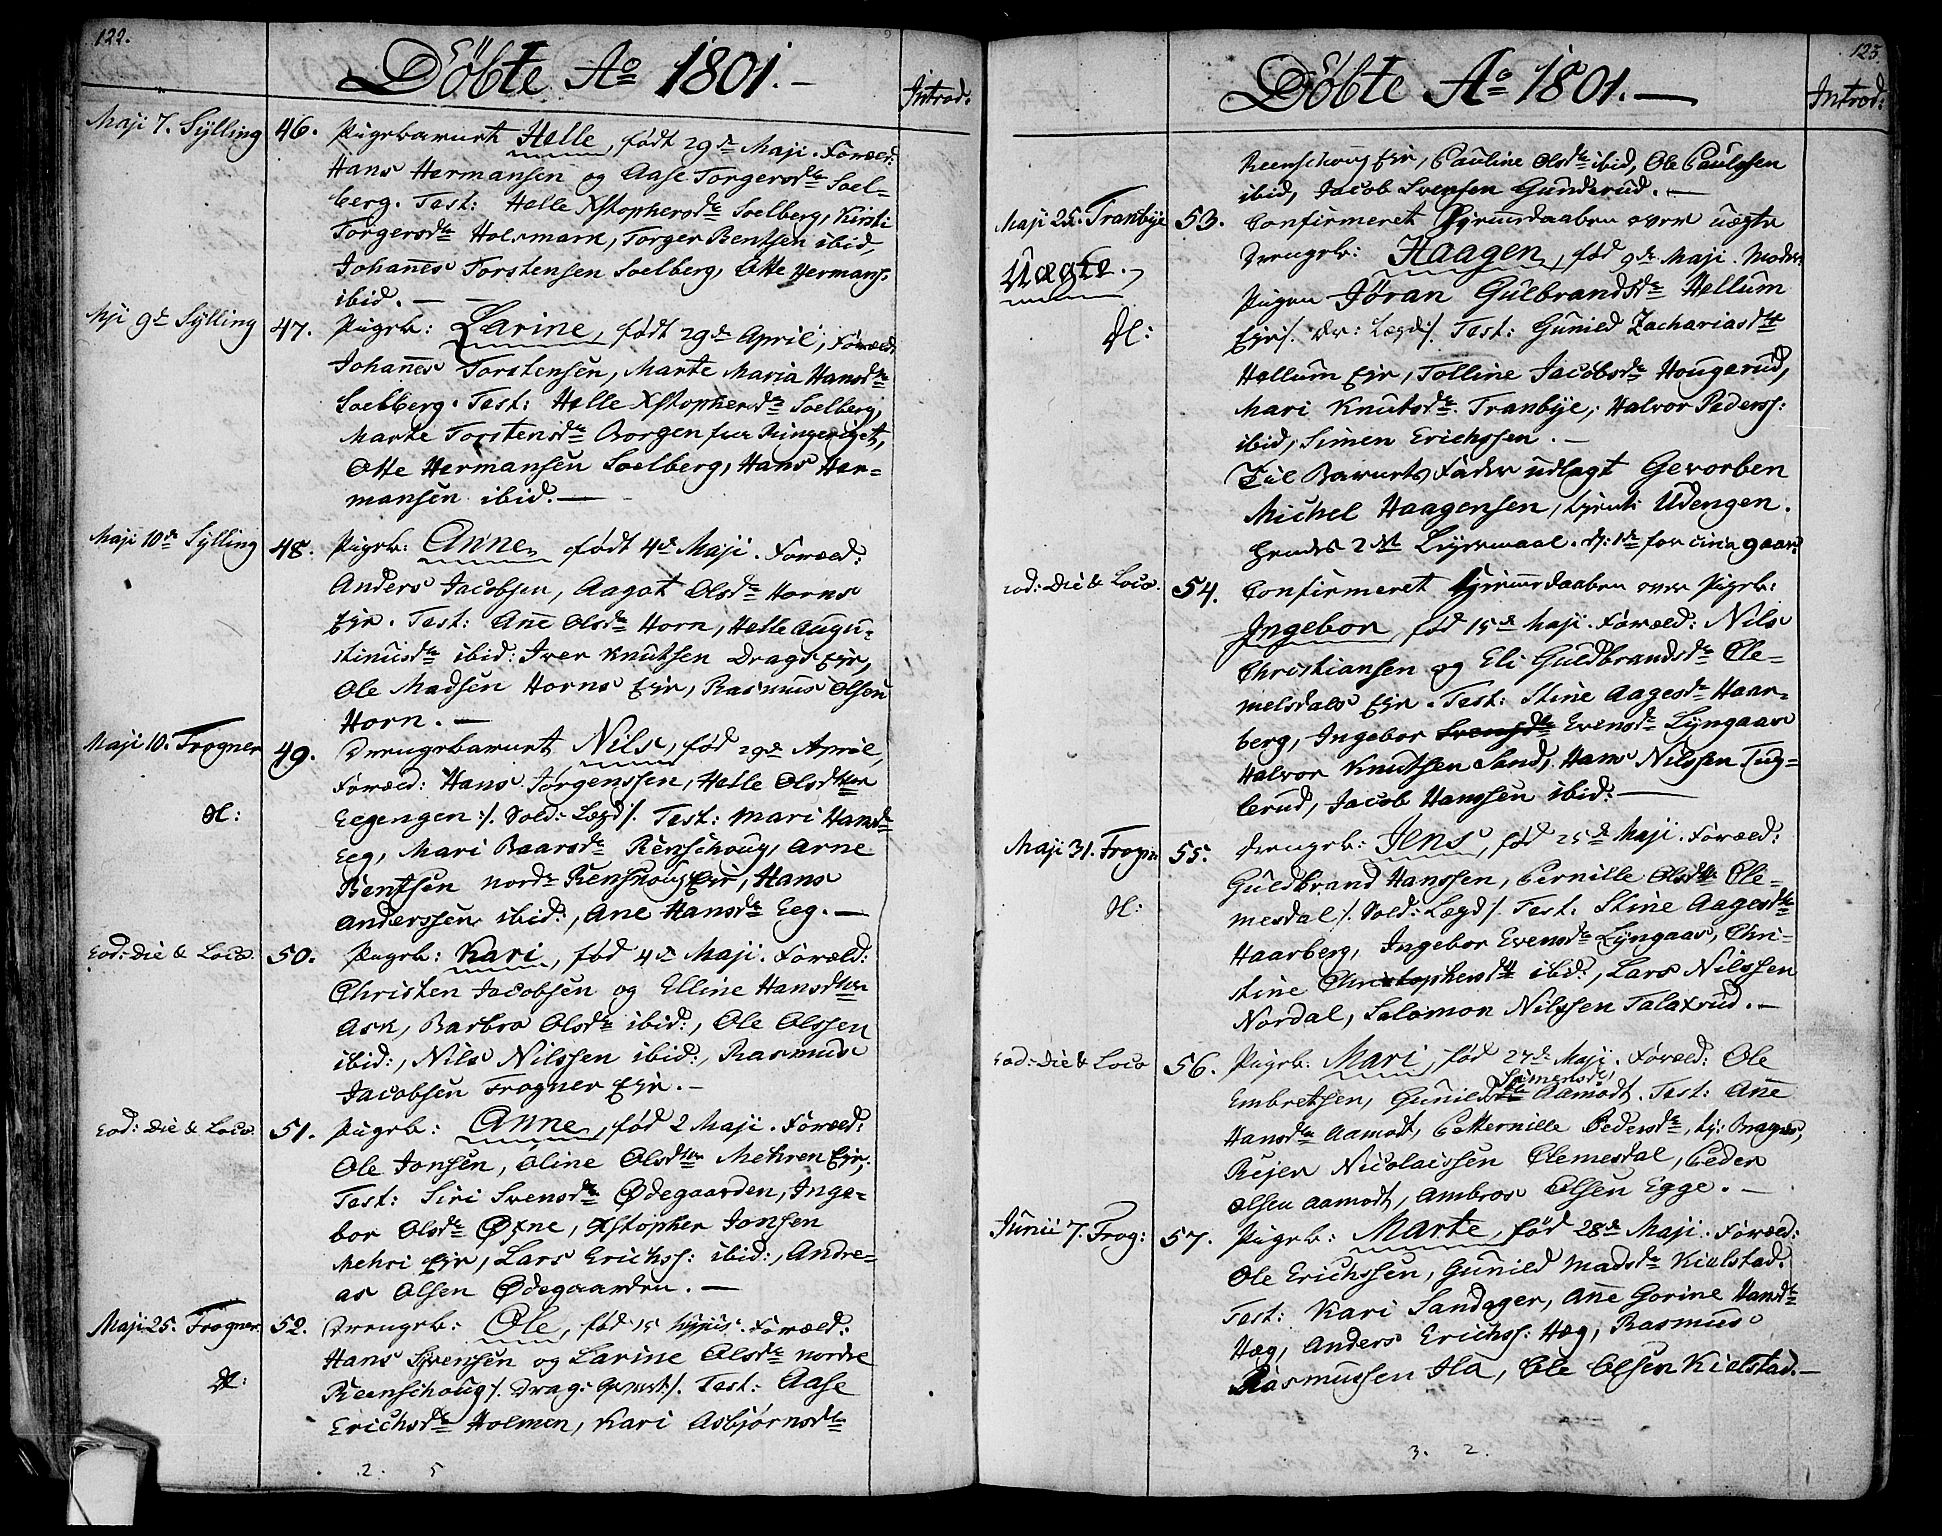 122.
Döbte Ao 1801.—
Introd.
Maji 7. Sylling 46. Pigebarnet Helle, født 29de Maji. Foræld:
Hans Hermansen og Aase Torgersdr Soel-
berg. Test: Helle Xstophersdr Soelberg, Kirsti
Torgersdr Holsmark, Torger Bentsen ibid,
Johanes Torstensen Soelberg, Otte Hermans:
ibid.—
Mji 9de Sylling 47. Pigeb: Larine, født 29de April, Foræld:
Johanes Torstensen, Marte Maria Hansdr
Soelberg. Test: Helle Xstophersdr Soelberg,
Marte Torstensdr Borgen fra Ringeriget,
Otte Hermansen Soelberg, Hans Her-
mansen ibid.—
Maji 10de Sylling 48. Pigeb: Anne, født 4de Maji. Foræld:
Anders Jacobsen, Aagot Olsdr Horns
Eje. Test: Ane Olsdr Horn, Helle Augu-
stinusdr ibid: Iver Knutsen Drags Eje,
Ole Madsen Horns Eje, Rasmus Olsen
Horn.—
Maji 10. Frogner 49. Drengebarnet Nils, fød 29de April,
Foræld: Hans Jørgenssen, Helle Olsdtr
N: Eegengen /: Sold: Lægd /: Test: Mari Hansdr
Eeg, Mari Baarsdr Renschoug, Arne
Bentsen nordr Renshoug Eje, Hans
Anderssen ibid:, Ane Hansdr Eeg.—
Eod: Die & Loco. 50. Pigeb: Kari, fød 4de Maji. Foræld:
Christen Jacobsen og Elline Hansdtr
Ask, Barbro Olsdr ibid:, Ole Olssen
ibid:, Nils Nilssen ibid:, Rasmus
Jacobsen Frogner Eje.—
Eod: Die & Loco. 51. Pigeb: Anne, fød 2 Maji. Foræld:
Ole Jonsen, Oline Olsdtr Mehren Eje,
Test: Siri Svensdr Ødegaarden, Inge-
bor Olsdr Øxne, Xstopher Jonsen
Mehri Eje, Lars Erichss: ibid:, Andre-
as Olsen Ødegaarden.—
Maji 25. Frogner 52. Drengeb: Ole, fød 15 Foræld:
Hans Syvensen og Larine Olsdr nordre
N: Reenschoug /: Drag: /: Test: Aase
Erichsdr Holmen, Kari Asbjørnsdr
2. 5
123.
Döbte Ao 1801.—
Introd:
Reenschoug Eje, Pauline Olsdr ibid, Ole Paulssen
ibid, Jacob Svensen Gunderud.—
Maji 25. Tranbye 53. Confirmeret Hjemmedaaben over uægte
Uægte. Drengeb: Haagen, fød 9de Maji. Moder:
Pigen Jöran Gulbrandsdr Hellum
N: Eje /: Lægd /: Test: Gunild Zachariasdr
Hellum Eje, Tolline Jacobsdr Hougerud,
Mari Knutsdr Tranbye, Halvor Pederss:
ibid, Simen Erichssen.—
Til Barnets Fader udlagt Geworben
Michel Haagensen, Udengen.
Hendes 2det Leyermaal. D: 1te for circa 9 aar
Eod: Die & Loco. 54. Confirmeret Hjemmedaaben over Pigeb:
Ingebor, fød 15de Maji. Foræld: Nils
Christiansen og Eli Guldbrandsdr Cle-
melsdals Eje. Test: Stine Aagesdr Haar-
berg, Ingebor Svensdr Evensdr Lyngaas
Halvor Knutsen Sand, Hans Nilssen Tug-
lerud, Jacob Hanssen ibid:—
Maji 31. Frogn: 55. Drengeb: Jens, fød 25de Maji. Foræld:
Guldbrand Hanssen, Pernille Olsdtr Cle-
N: mesdal /: Sold: Lægd /: Test: Stine Aagesdr
Haarberg, Ingebor Evensdr Lyngaas, Chri-
stine Christophersdr ibid:, Lars Nilssen
Nordal, Salomon Nilssen Talaxrud.—
Eod: Die & Loco 56. Pigeb: Mari, fød 27de Maji. Foræld: Ole
Embretsen, Gunild Simensdr Aamodt. Test: Ane
Hansdr Aamodt, Petternille Pedersdr, Bragnes,
Rejer Nicolaissen Clemesdal, Peder
Olsen Aamodt, Ambros Olsen Egge.—
Junii 7. Frog: 57. Pigeb: Marte, fød 28de Maji. Foræld:
Ole Erichssen, Gunild Madsdr Kielstad.
Test: Kari Sandager, Ane Gorine Hansdr
Hæg, Anders Erichss: Hæg, Rasmus
Rasmussen Ila, Ole Olsen Kielstad.—
3. 2.